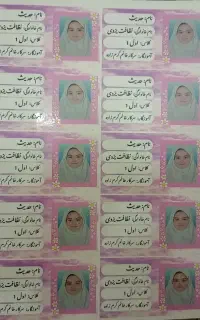 نام: حدیث
نام خانوادگی: نظافت یزدی
کلاس: اول ۱
آموزگار: سرکار خانم کرم زاده
نام: حدیث
نام خانوادگی: نظافت یزدی
کلاس: اول ۱
آموزگار: سرکار خانم کرم زاده
نام: حدیث
نام خانوادگی: نظافت یزدی
کلاس: اول ۱
آموزگار: سرکار خانم کرم زاده
نام: حدیث
نام خانوادگی: نظافت یزدی
کلاس: اول ۱
آموزگار: سرکار خانم کرم زاده
نام: حدیث
نام خانوادگی: نظافت یزدی
کلاس: اول ۱
آموزگار: سرکار خانم کرم زاده
نام: حدیث
نام خانوادگی: نظافت یزدی
کلاس: اول ۱
آموزگار: سرکار خانم کرم زاده
نام: حدیث
نام خانوادگی: نظافت یزدی
کلاس: اول ۱
آموزگار: سرکار خانم کرم زاده
نام: حدیث
نام خانوادگی: نظافت یزدی
کلاس: اول ۱
آموزگار: سرکار خانم کرم زاده
نام: حدیث
نام خانوادگی: نظافت یزدی
کلاس: اول ۱
آموزگار: سرکار خانم کرم زاده
نام: حدیث
نام خانوادگی: نظافت یزدی
کلاس: اول ۱
آموزگار: سرکار خانم کرم زاده